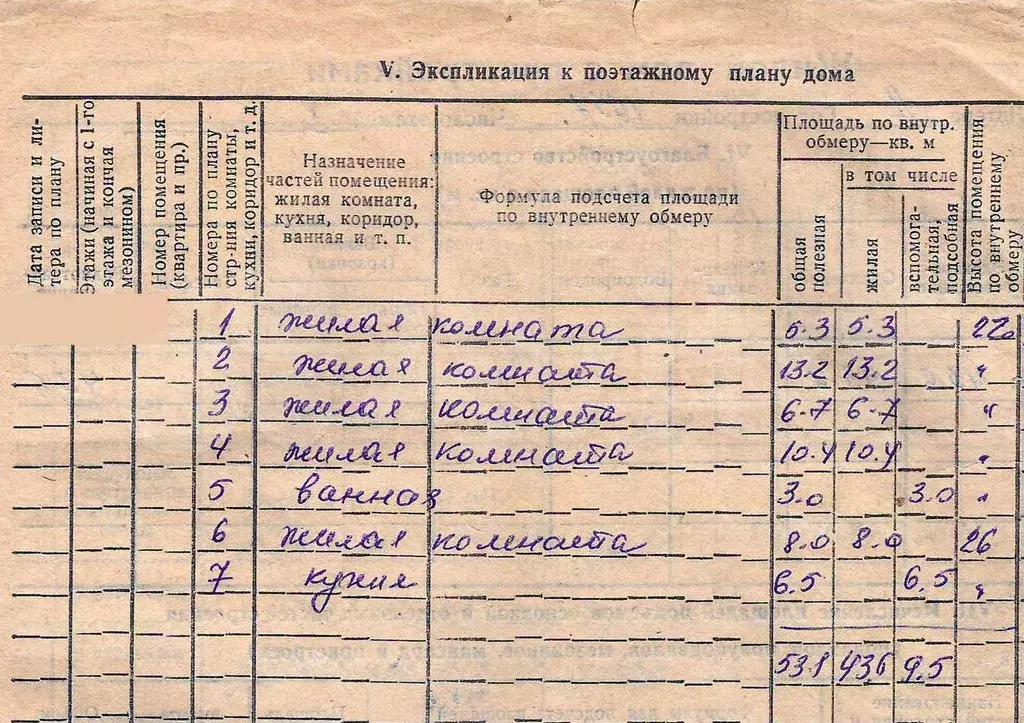 V. Экспликация к поэтажному плану дома
Дата записи и ли-
тера по плану
Этажи (начиная с 1-го
этажа и кончая
мезонином)
Номер помещения
(квартира и пр.)
Номера по плану
стр-ния комнаты,
кухни, коридор и т. д.
Назначение
частей помещения:
жилая комната,
кухня, коридор,
ванная и т. п.
Формула подсчета площади
по внутреннему обмеру
Площадь по внутр.
обмеру—кв. м
общая
полезная
в том числе
жилая
вспомога-
тельная,
подсобная
Высота помещения
по внутреннему
обмеру
1 жилая комната 5.3 5.3
2 жилая комната 13.2 13.2 "
3 жилая комната 6.7 6.7 "
4 жилая комната 10.4 10.4 "
5 ванная 3.0 3.0 "
6 жилая комната 8.0 8.0 26
7 кухня 6.5 6.5 "
53.1 43.6 9.5